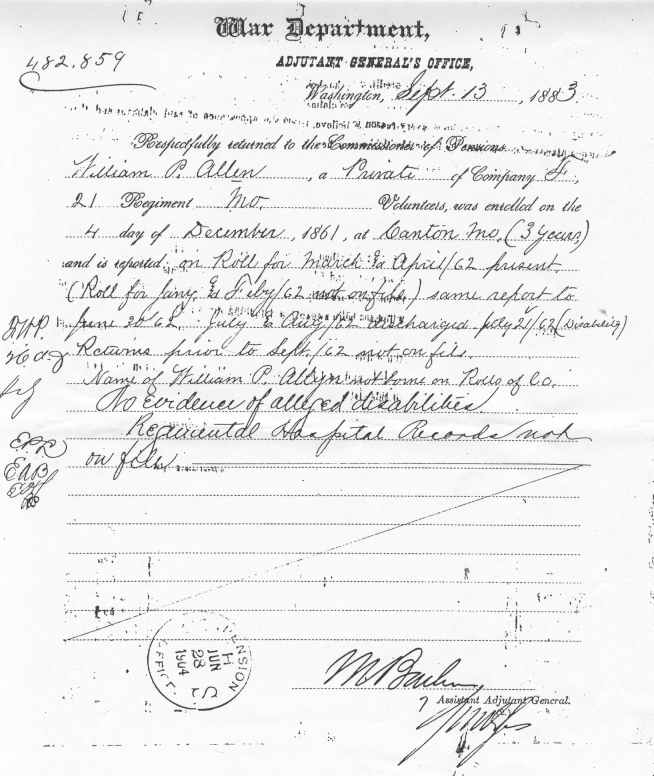 War Department,
482.859
ADJUTANT GENERAL'S OFFICE,
Washington, Sept. 13, 1883
Respectfully returned to the Commissioner of Pensions.
William P. Allen, a Private of Company F,
21 Regiment Mo. Volunteers, was enrolled on the
4 day of December, 1861, at Canton Mo, (3 years)
and is reported on Roll for March & April/62 present.
(Roll for Jany & Feby/62 not on file,) same report to
June 30 62, July & Aug/62 discharged July 21/62 (Disability)
Returns prior to Sept./62 not on file.
Name of William P. Allyn not borne on Rolls of Co.
No evidence of alleged disabilities.
Regimental Hospital Records not
on file
E.P.R
EAB
PENSION OFFICE
JUN
28
1904
Assistant Adjutant General.